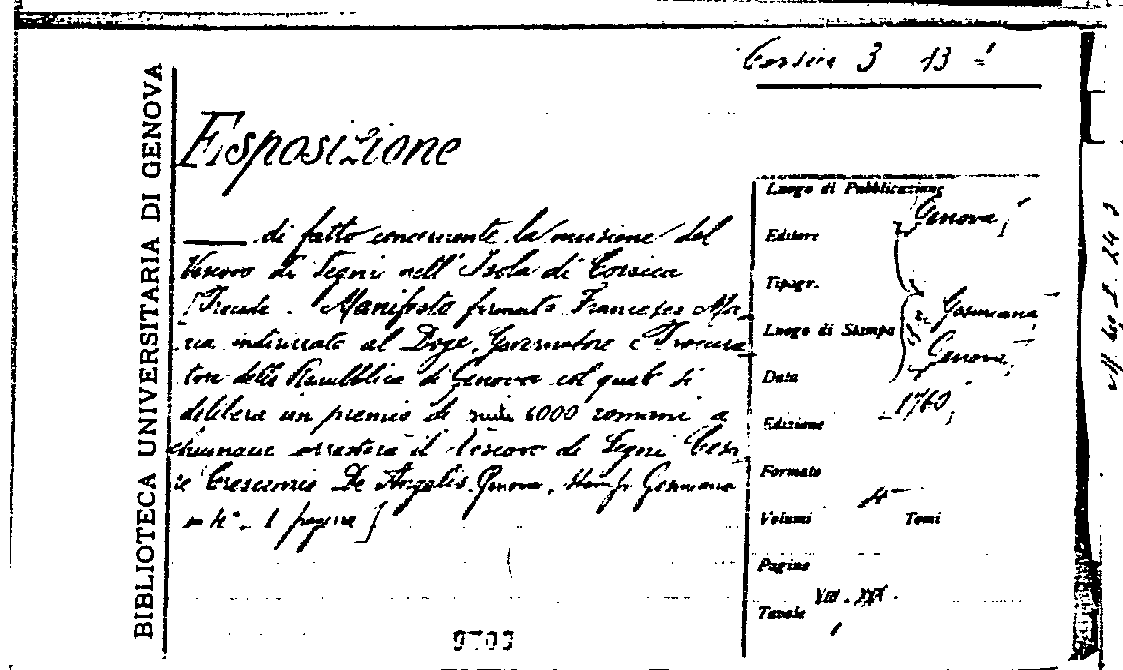 BIBLIOTECA UNIVERSITARIA DI GENOVA
Corsica 3 13
Esposizione
di fatto concernente la missione del
Vescovo di Segni nell'Isola di Corsica
[Precede. Manifesto firmato Francesco Ma-
ria indirizzato al Doge, Governatore e Procura
tori della Repubblica di Genova col quale si
delibera un premio di scudi 6000 romani a
chiunque arresterà il Vescovo di Segni Cesa
re Crescenzio De Angelis. Genova, Stamp. Gesiniana
in 4°. 1 pagina]
Luogo di Pubblicazione Genova
Editore
Tipogr. Gesiniana
Luogo di Stampa Genova
Data 1760
Edizione
Formato 4°
Volumi Tomi
Pagine VIII. XXI.
Tavole
9709